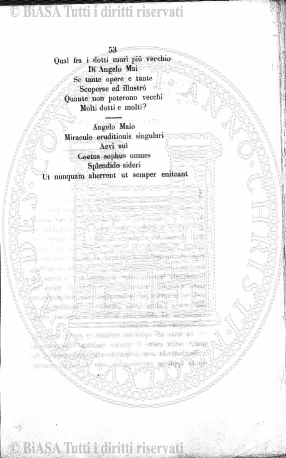 © BiASA Tutti i diritti riservati
53
Qual fra i dotti morì più vecchio
Di Angelo Mai
Se tante opere e tante
Scoperse ed illustrò
Quante non poterono vecchi
Molti dotti e molti?
Angelo Maio
Miraculo eruditionis singulari
Aevi sui
Coetus sophus omnes
Splendido sideri
Ut nunquam aberrent ut semper eniteant
© BiASA Tutti i diritti riservati